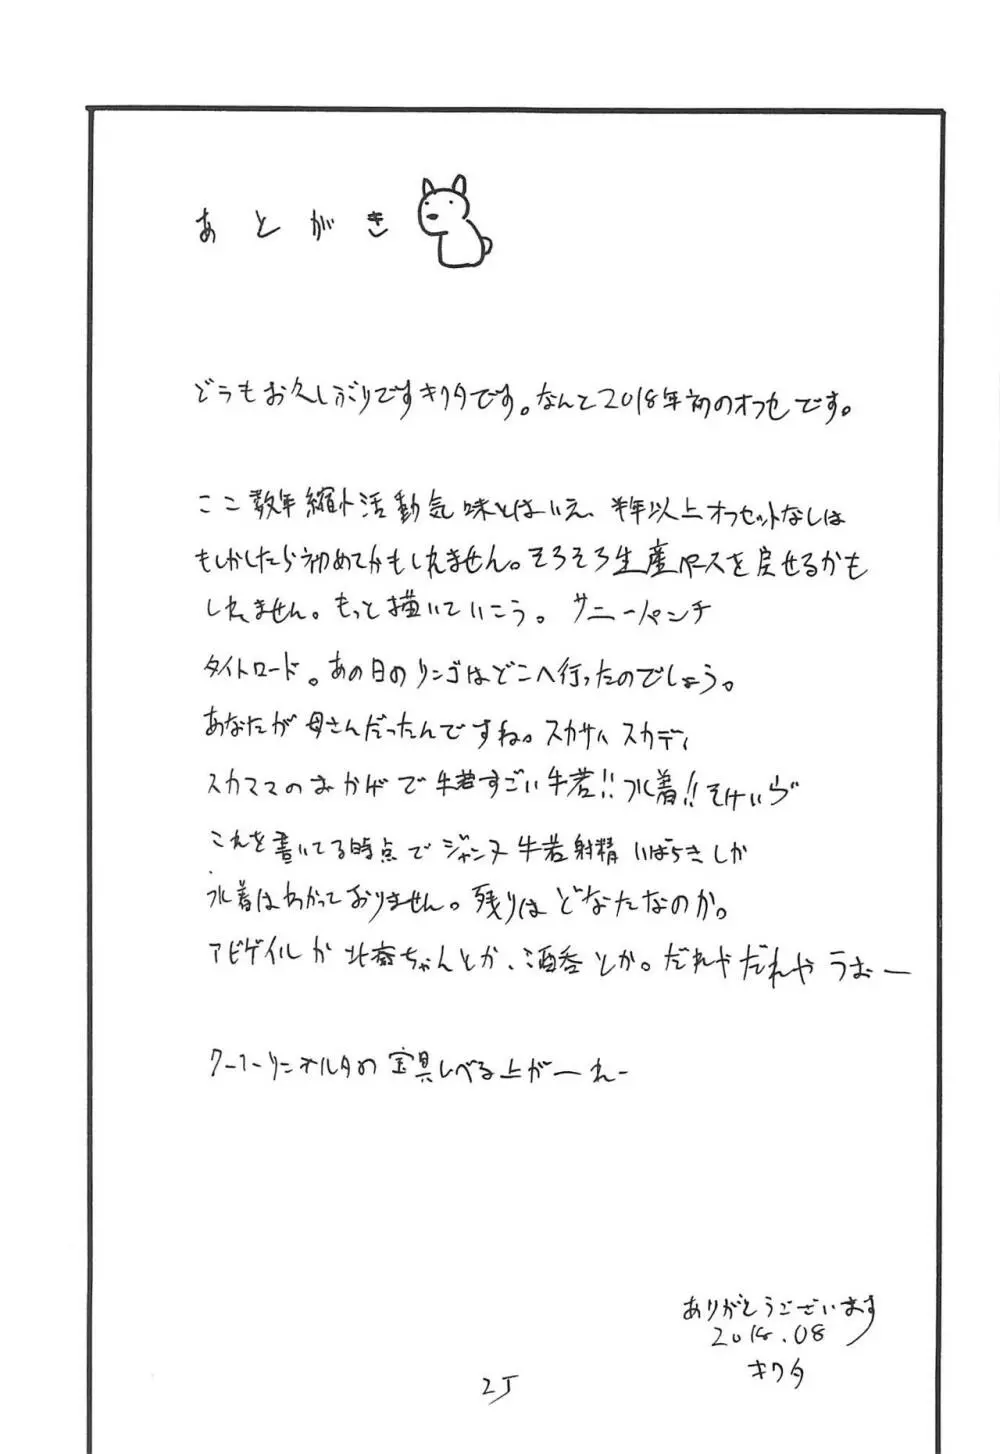 あとがき
どうもお久しぶりですキクタです。なんと2018年初のオフセです。
ここ数年縮小活動気味とはいえ、半年以上オフセットなしは
もしかしたら初めてかもしれません。そろそろ生産ペースを戻せるかも
しれません。もっと描いていこう。サニーパンチ
タイトロード。あの日のリンゴはどこへ行ったのでしょう。
あなたが母さんだったんですね。スカサハ スカディ
スカママのおかげで牛若すごい牛若!!水着!!
これを書いてる時点でジャンヌ 牛若 いばらきしか
水着はわかっておりません。残りはどなたなのか。
アビゲイルか北斎ちゃんとか、酒呑とか。だれやだれやうおー
クーフーリンオルタの宝具レベる上がーれー
ありがとうございます
2018.08
キクタ
25